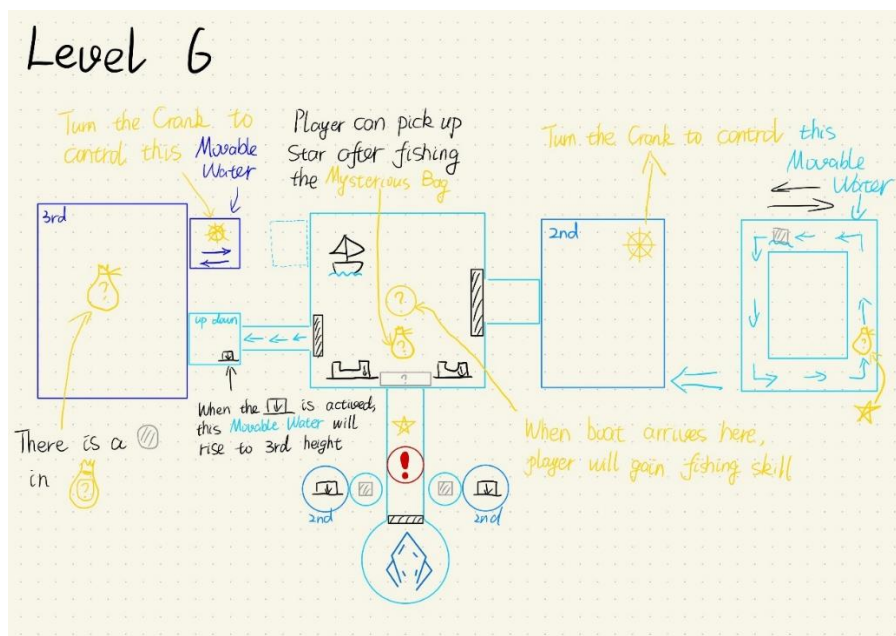 Level 6
Turn the Crank to
control this Movable
Water
Player can pick up
Star after fishing
the Mysterious Bag
Turn the Crank to control this
Movable
Water
3rd
2nd
?
?
?
up down
?
When the is actived,
this Movable Water will
rise to 3rd height
There is a
in ?
When boat arrives here,
player will gain fishing skill
?
!
2nd
2nd